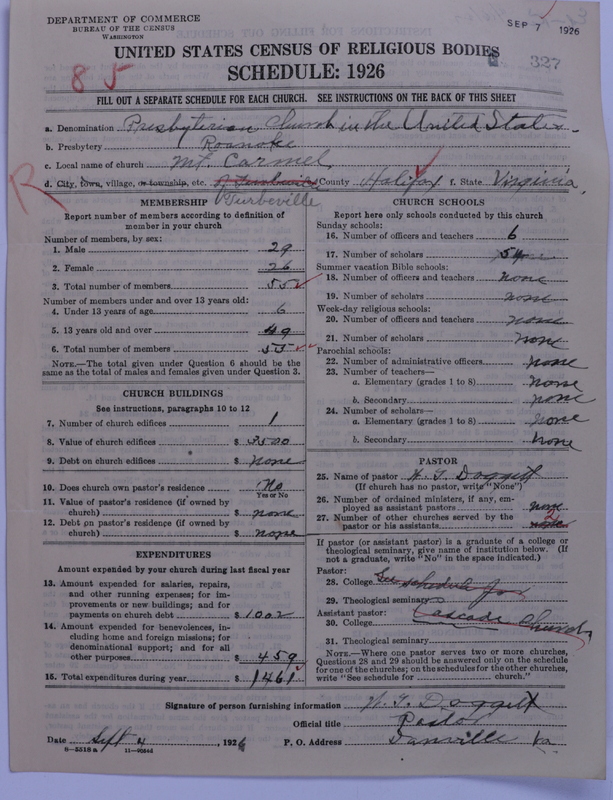 DEPARTMENT OF COMMERCE
BUREAU OF THE CENSUS
WASHINGTON
SEP 7 1926
327
UNITED STATES CENSUS OF RELIGIOUS BODIES
SCHEDULE: 1926
85
FILL OUT A SEPARATE SCHEDULE FOR EACH CHURCH. SEE INSTRUCTIONS ON THE BACK OF THIS SHEET
a. Denomination Presbyterian Church in the United States
b. Presbytery Roanoke
c. Local name of church Mt. Carmel
R
d. City, town, village, or township, etc. County Halifax f. State Virginia
Turbeville
MEMBERSHIP
Report number of members according to definition of
member in your church
Number of members, by sex:
1. Male 29
2. Female 26
3. Total number of members 55
Number of members under and over 13 years old:
4. Under 13 years of age 6
5. 13 years old and over 49
6. Total number of members 55
NOTE.—The total given under Question 6 should be
same as the total of males and females given under Question 3.
CHURCH BUILDINGS
See instructions, paragraphs 10 to 12
7. Number of church edifices 1
8. Value of church edifices $ 3500
9. Debt on church edifices $ none
10. Does church own pastor's residence No
Yes or No
11. Value of pastor's residence (if owned by
church) $ none
12. Debt on pastor's residence (if owned by
church) $ none
EXPENDITURES
Amount expended by your church during last fiscal year
13. Amount expended for salaries, repairs,
and other running expenses; for im-
provements or new buildings; and for
payments on church debt $ 1002
14. Amount expended for benevolences, in-
cluding home and foreign missions; for
denominational support; and for all
other purposes $ 459
15. Total expenditures during year $ 1461
CHURCH SCHOOLS
Report here only schools conducted by this church
Sunday schools:
16. Number of officers and teachers 6
17. Number of scholars 54
Summer vacation Bible schools:
18. Number of officers and teachers none
19. Number of scholars none
Week-day religious schools:
20. Number of officers and teachers none
21. Number of scholars none
Parochial schools:
22. Number of administrative officers none
23. Number of teachers—
a. Elementary (grades 1 to 8) none
b. Secondary none
24. Number of scholars—
a. Elementary (grades 1 to 8) none
b. Secondary none
PASTOR
25. Name of pastor W. T. Doggett
(If church has no pastor, write "None")
26. Number of ordained ministers, if any, em-
ployed as assistant pastors none
27. Number of other churches served by the 2
pastor or his assistants none
If pastor (or assistant pastor) is a graduate of a college or
theological seminary, give name of institution below. (If
not a graduate, write "No" in the space indicated.)
Pastor:
28. College See schedule for
29. Theological seminary
Assistant pastor: Cascade Church
30. College
31. Theological seminary
NOTE.—Where one pastor serves two or more churches,
Questions 28 and 29 should be answered only on the schedule
for one of the churches; on the schedules for the other churches,
write "See schedule for church."
Signature of person furnishing information W. T. Doggett
Official title Pastor
Date Sept 4, 1926 P. O. Address Danville Va
8-5518 a